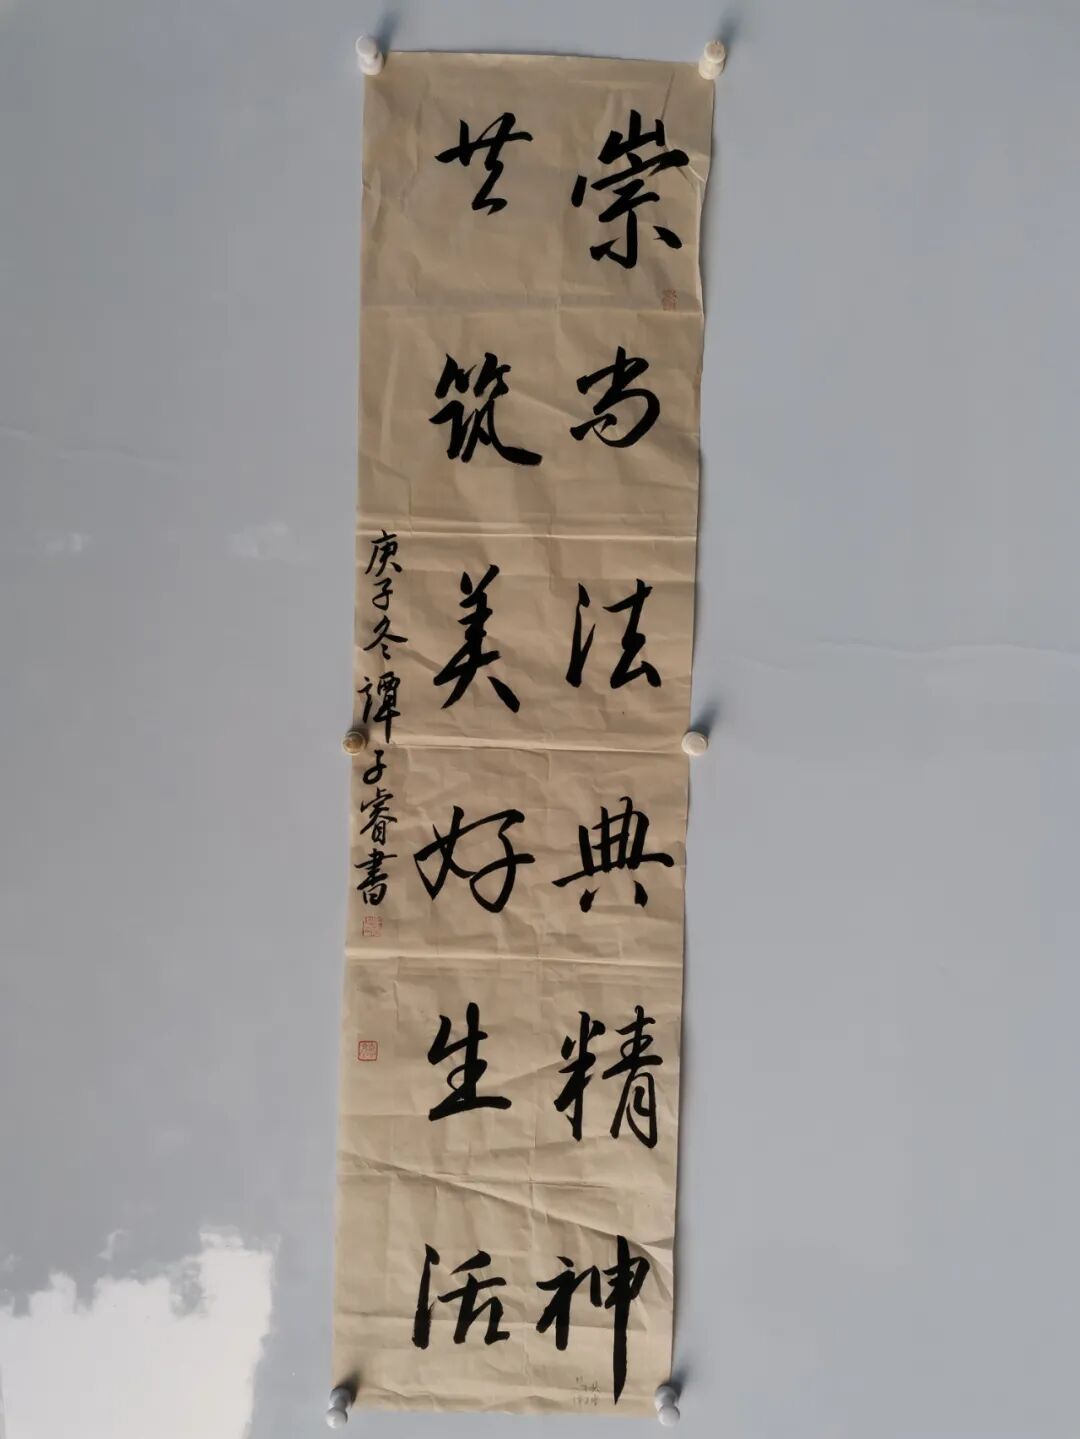 崇尚法典精神
共筑美好生活
庚子冬譚子睿書